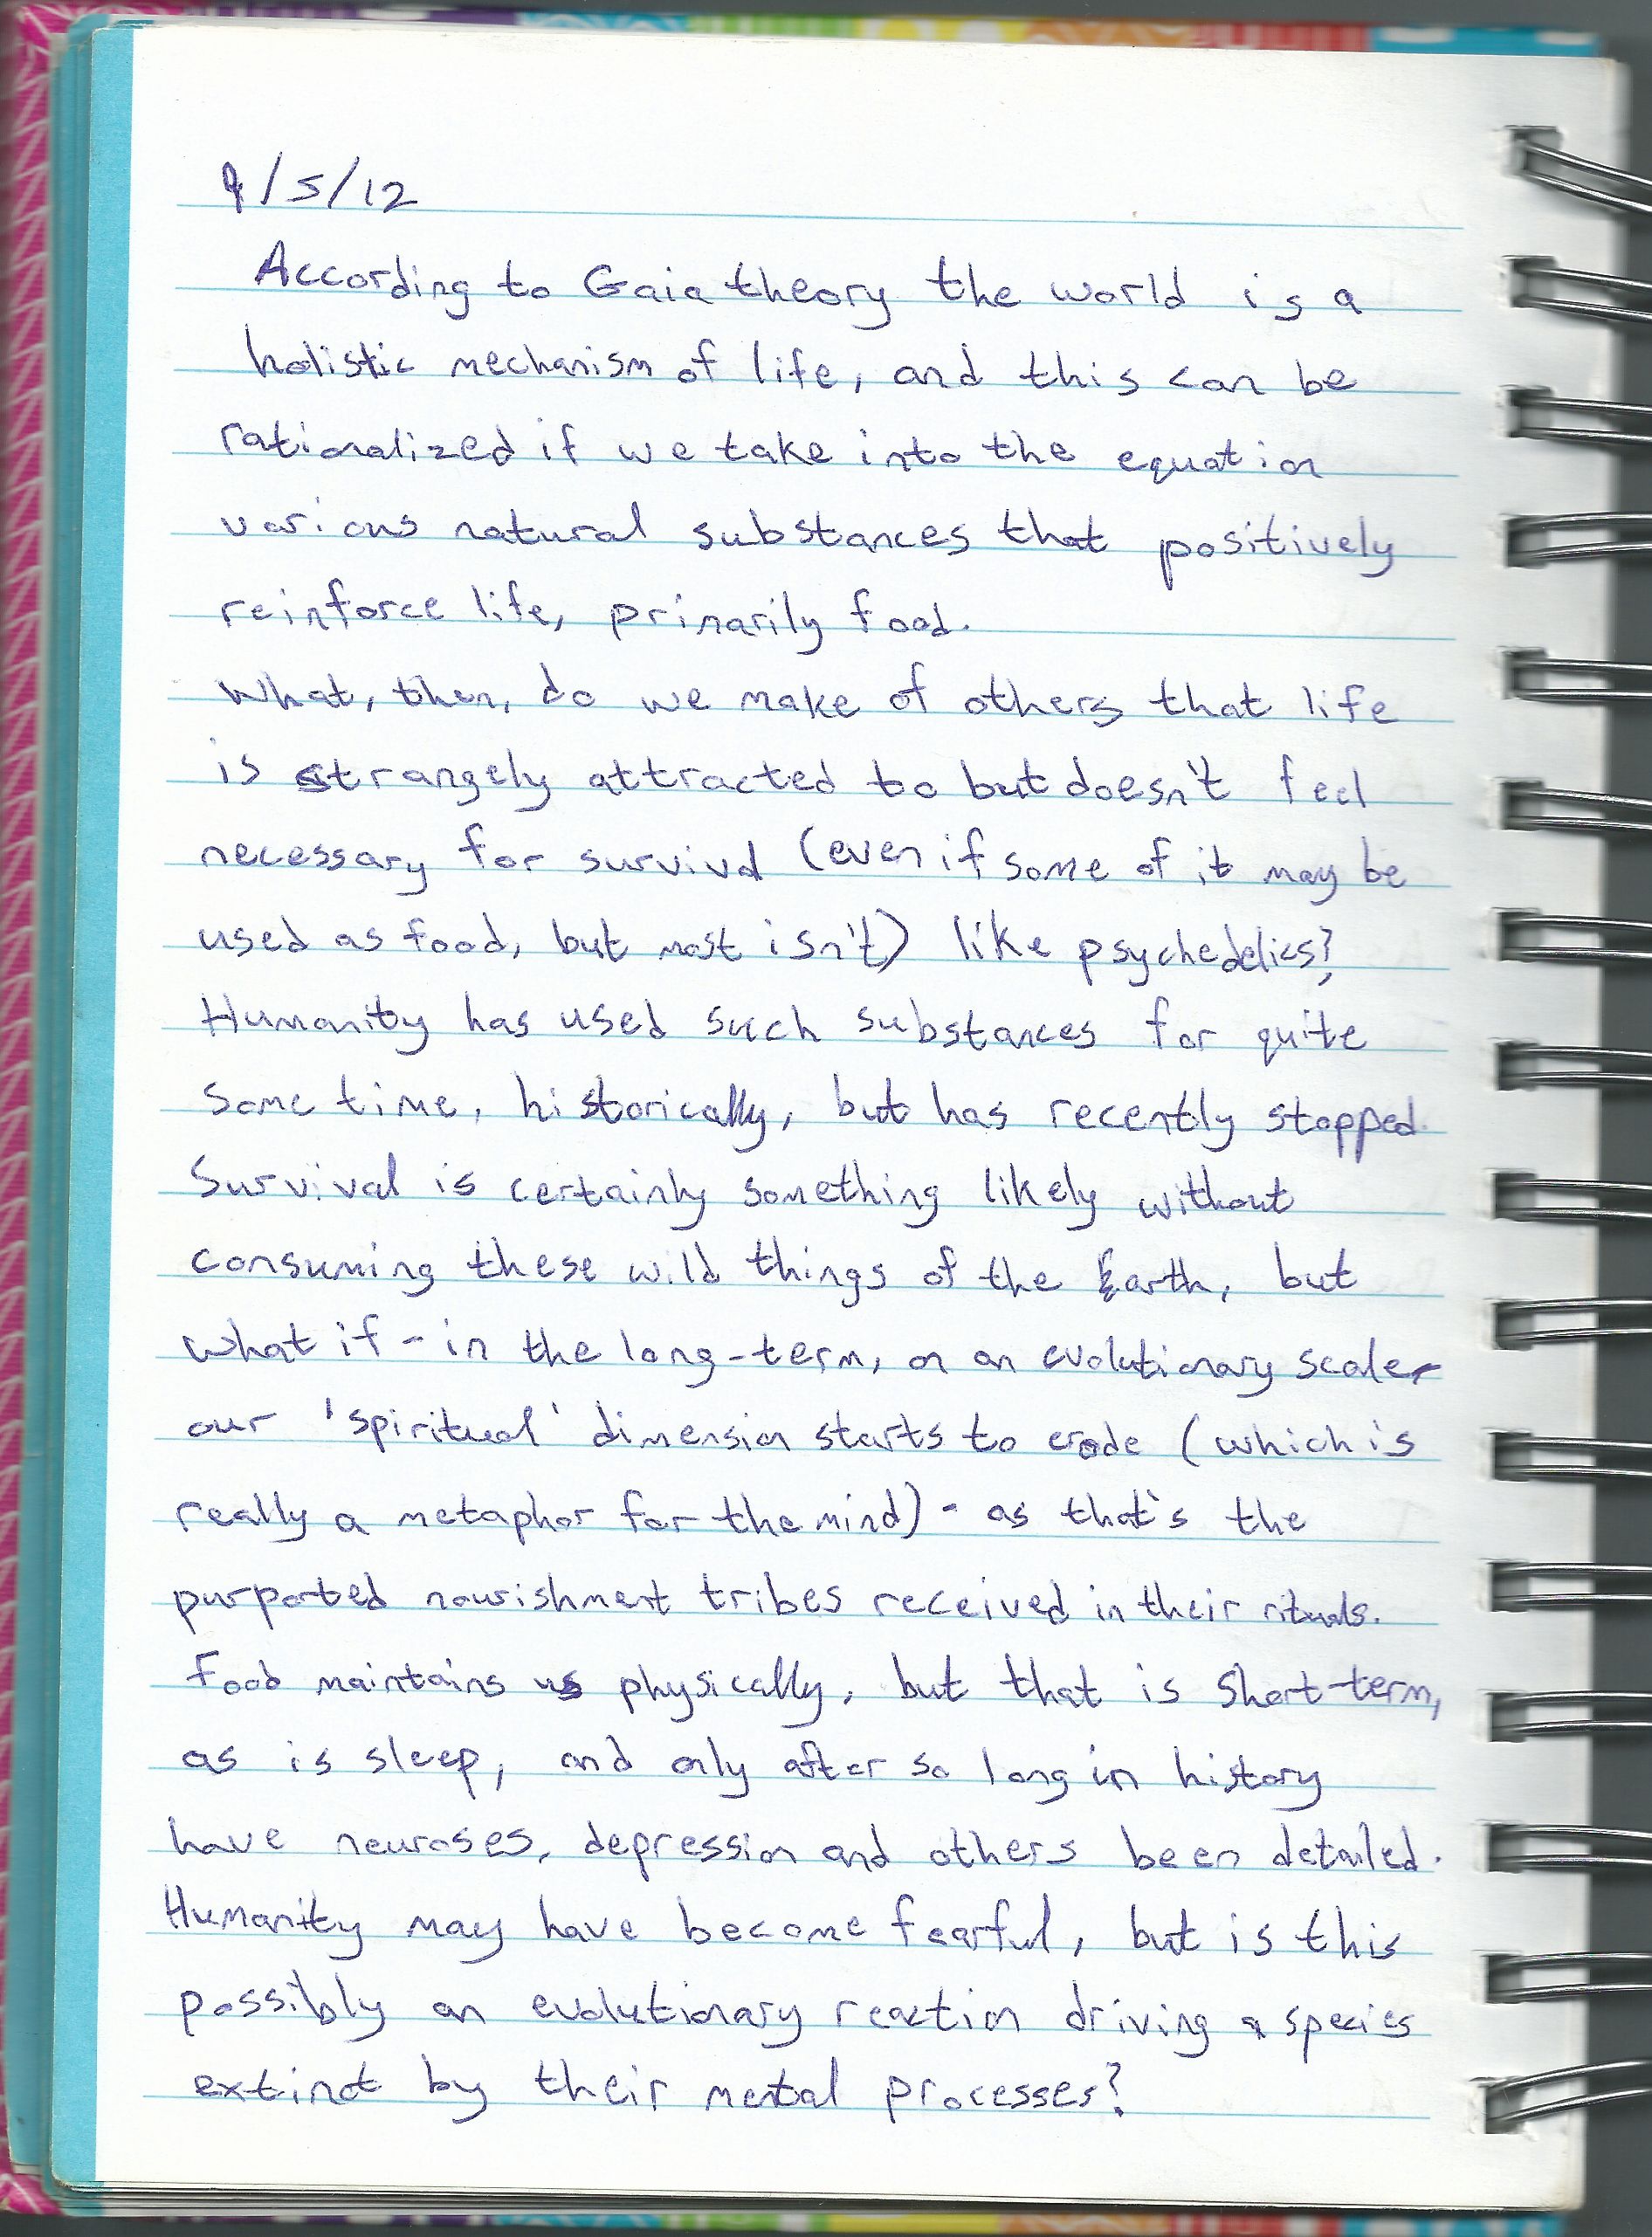 9/5/12
According to Gaia theory the world is a
holistic mechanism of life, and this can be
rationalized if we take into the equation
various natural substances that positively
reinforce life, primarily food.
What, then, do we make of others that life
is strangely attracted to but doesn't feel
necessary for survival (even if some of it may be
used as food, but most isn't) like psychedelics?
Humanity has used such substances for quite
some time, historically, but has recently stopped.
Survival is certainly something likely without
consuming these wild things of the Earth, but
what if - in the long-term, on an evolutionary scale -
our 'spiritual' dimension starts to erode (which is
really a metaphor for the mind) - as that's the
purported nourishment tribes received in their rituals.
Food maintains us physically, but that is short-term,
as is sleep, and only after so long in history
have neuroses, depression and others been detailed.
Humanity may have become fearful, but is this
possibly an evolutionary reaction driving a species
extinct by their mental processes?